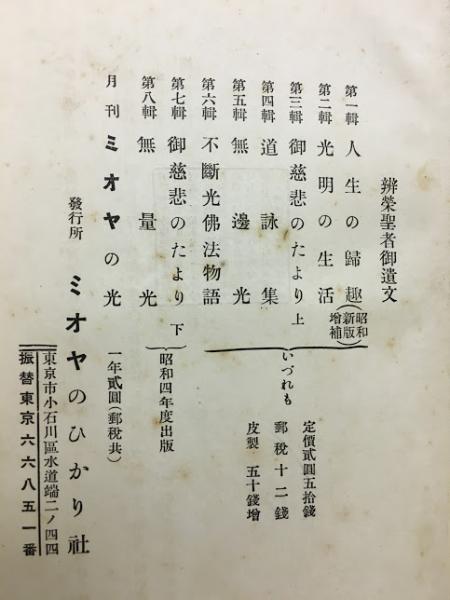 辨榮聖者御遺文
第一輯 人生の歸趣(昭和新版增補)
第二輯 光明の生活
第三輯 御慈悲のたより 上
第四輯 道詠集
第五輯 無邊光
第六輯 不斷光佛法物語
いづれも
定價貳圓五拾錢
郵稅十二錢
皮製 五十錢增
第七輯 御慈悲のたより 下
第八輯 無量光
昭和四年度出版
月刊 ミオヤの光 一年貳圓(郵稅共)
發行所 ミオヤのひかり社
東京市小石川區水道端二ノ四四
振替東京六六八五一番